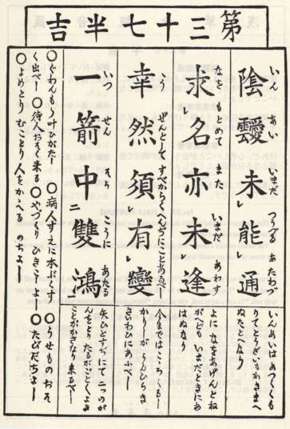 第三十七半吉
陰靉未能通
いん あい いまだ つうずる あたわず
求名亦未逢
なを もとめて また いまだ あわず
幸然須有變
こう ぜんとして すべからくへんずることあるべし
一箭中雙鴻
いつ せん そう こうに あたる
いんあいはあつくくも
りてとうざいもわきまへ
ぬたとへなり
よになをあげんとね
がへどもいまだときにあ
はぬなり
今まではこゝろくもり
しがうんひらき
さいわひにあふべし
矢ひとすぢにて二つのが
んを
ことがかさなり来るべし
○病人すえに本ぷくす
○うせものおそ
く出べし
○待人おそく来る
○やづくりひきこしよし
○たびだちよし
○よめとりむことり人をかゝへるのもよし